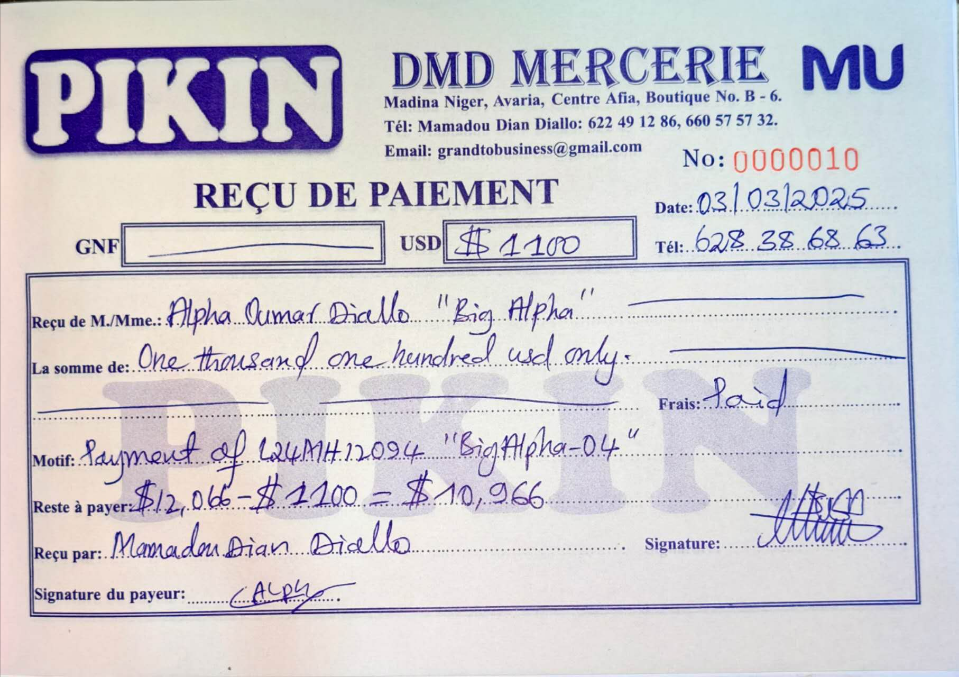 PIKIN
DMD MERCERIE MU
Madina Niger, Avaria, Centre Afia, Boutique No. B - 6.
Tél: Mamadou Dian Diallo: 622 49 12 86, 660 57 57 32.
Email: grandtobusiness@gmail.com
No: 0000010
REÇU DE PAIEMENT
Date: 03/03/2025
GNF USD $ 1100
Tél: 628 38 68 63
Reçu de M./Mme.: Alpha Oumar Diallo "Big Alpha"
La somme de: One thousand one hundred usd only.
Frais: Paid
Motif: Payment of L24A1H12094 "BigAlpha-04"
Reste à payer: $12,066 - $1100 = $10,966
Reçu par: Mamadou Dian Diallo
Signature:
Signature du payeur: ALPH
PIKIN